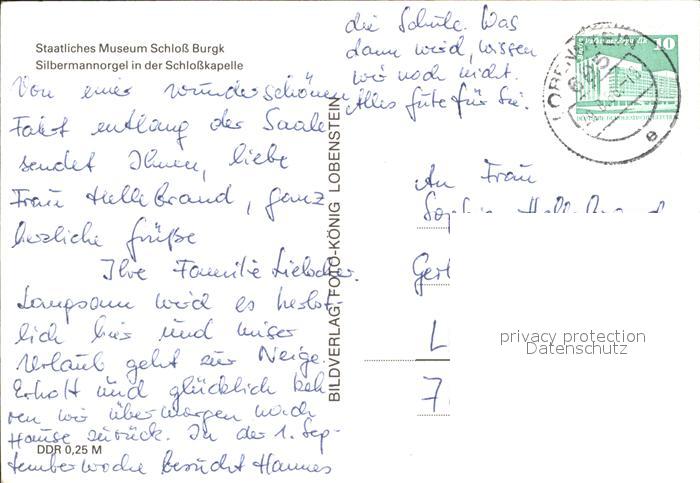 Staatliches Museum Schloß Burgk
Silbermannorgel in der Schloßkapelle
Von einer wunderschönen
Fahrt entlang der Saale
sendet Ihnen, liebe
Frau Hellebrand, ganz
herzliche Grüße
Ihre Familie
Langsam wird es herbst-
lich hier und unser
Urlaub geht zur Neige.
Erholt und glücklich keh-
ren wir übermorgen nach
Hause zurück. In der 1. Sep-
temberwoche besucht Hannes
die Schule. Was
dann wird, wissen
wir noch nicht.
Alles Gute für Sie.
DDR 0,25 M
BILDVERLAG FOTO-KÖNIG LOBENSTEIN
10
LOBENSTEIN
e
An Frau
Gert
L
7
privacy protection
Datenschutz